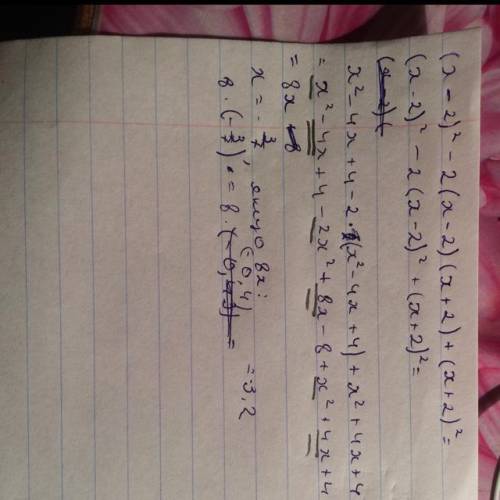 (x - 2)² - 2(x - 2)(x + 2) + (x + 2)² =
(x - 2)² - 2(x - 2)² + (x + 2)² =
x² - 4x + 4 - 2 · (x² - 4x + 4) + x² + 4x + 4
= x² - 4x + 4 - 2x² + 8x - 8 + x² + 4x + 4
= 8x - 8
x = - 3/7, якщо 8x:
8 · (- 3/7) = 8 · (-0,43) = (0,4) = 3,2